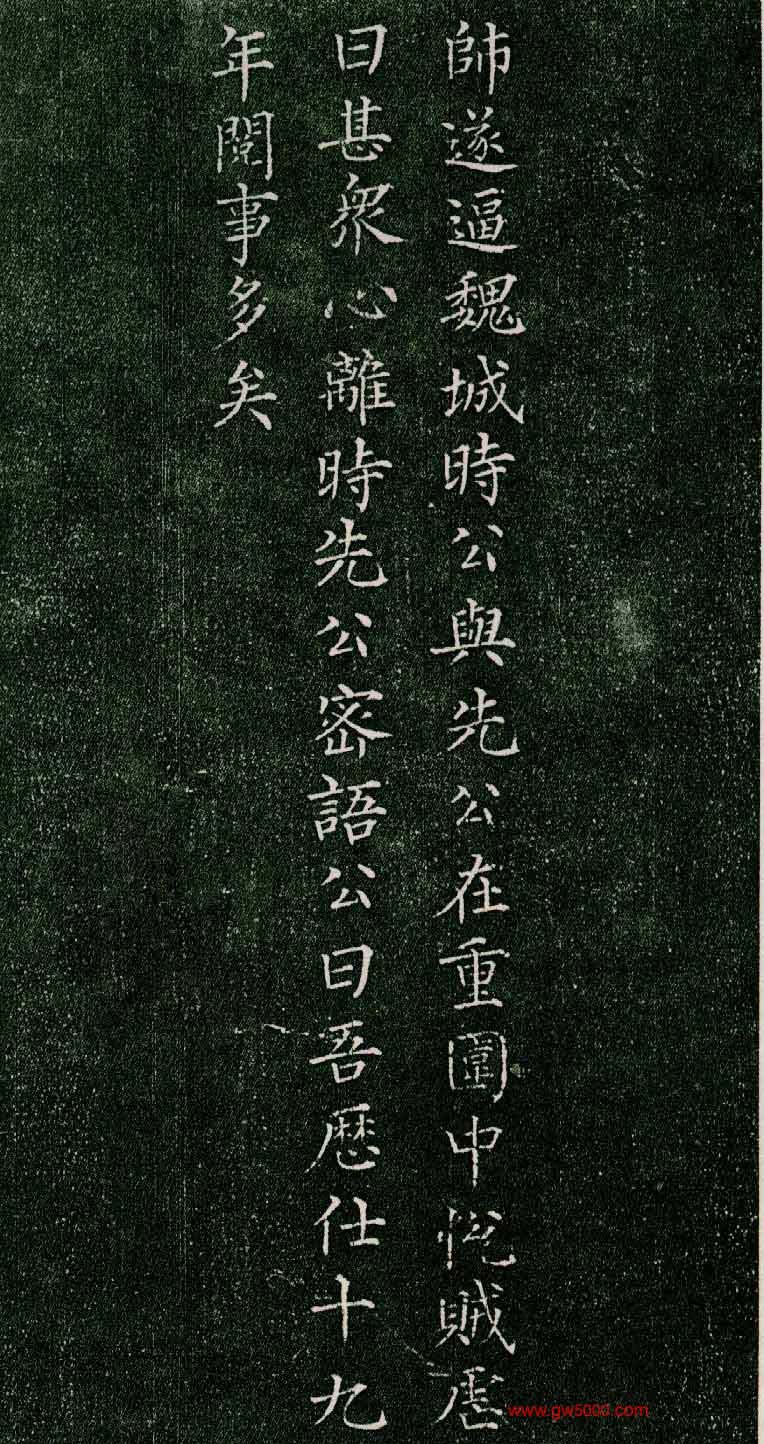 師遂逼魏城時公與先公在重圍中悅賊虐
日甚衆心離時先公密語公曰吾歷仕十九
年閱事多矣
www.gw5000.com